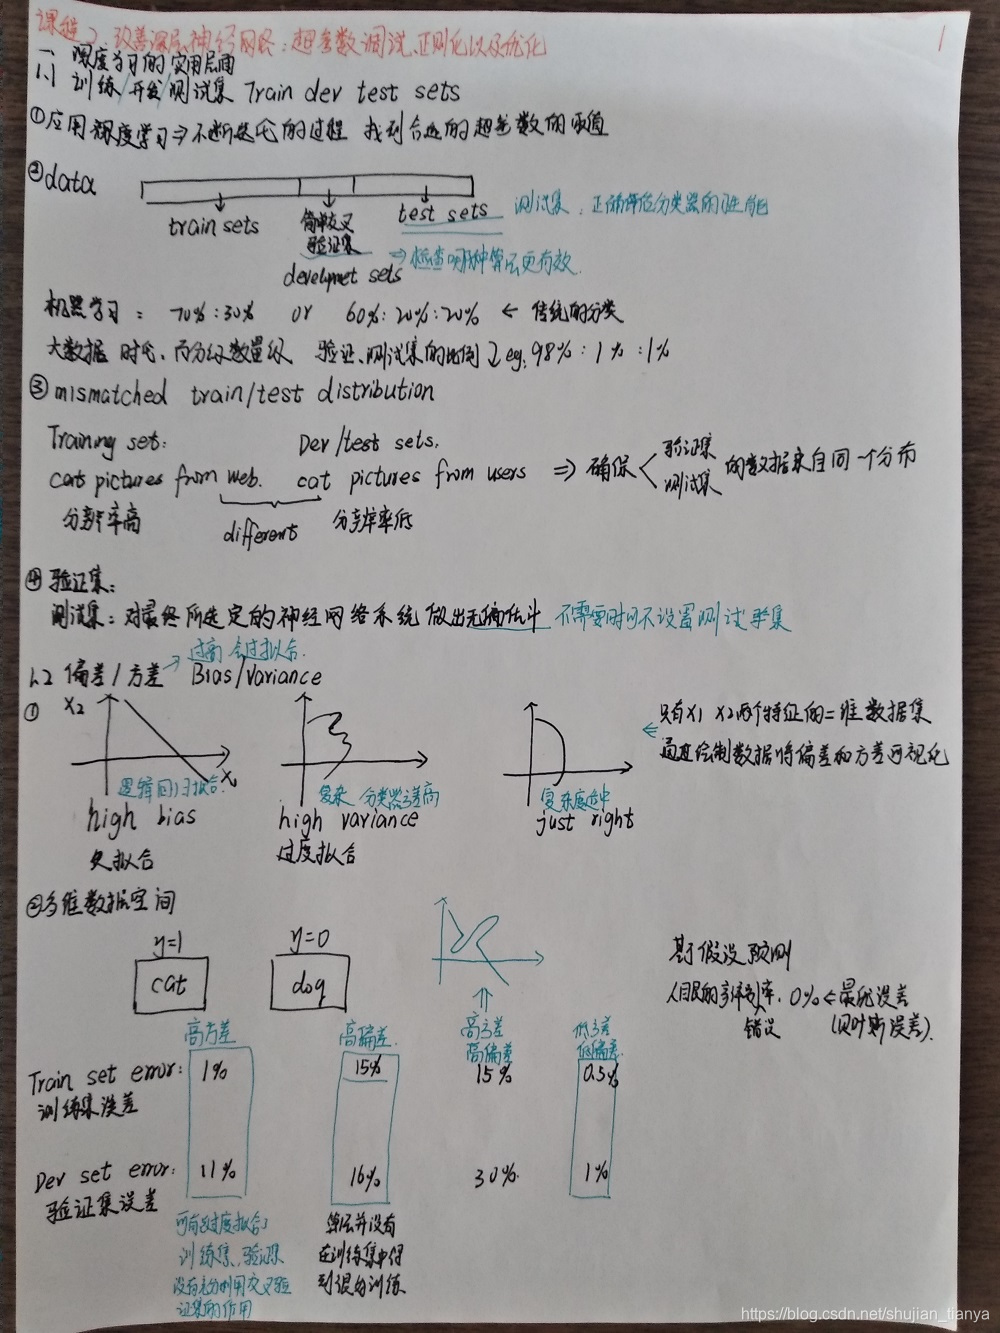 课程2、改善深层神经网络：超参数调试、正则化以及优化
1
一、深度学习的实用层面
1.1 训练/开发/测试集 Train dev test sets
①应用深度学习⇒不断迭代的过程 找到合适的超参数的取值
②data
train sets
简单交叉验证集
develpmet sets
test sets
测试集：正确评估分类器的性能
⇒检查哪种算法更有效
机器学习： 70%:30% or 60%:20%:20% ← 传统的分类
大数据时代、百万级数量级 验证、测试集的比例↓ eg, 98%:1%:1%
③mismatched train/test distribution
Training set: Dev/test sets.
cats pictures from web. cat pictures from users ⇒ 确保 验证集 测试集 的数据来自同一个分布
分辨率高 different 分辨率低
④验证集：
测试集：对最终所选定的神经网络系统做出无偏估计 不需要时可不设置测试集
→过高会过拟合.
1.2 偏差/方差 Bias/Variance
① X2
X1
逻辑回归拟合.
high bias
欠拟合
复杂分类器方差高
high variance
过度拟合
复杂度适中
just right
⇐ 只有x1 x2两个特征的二维数据集
通过绘制数据将偏差和方差可视化
②多维数据空间
y=1 y=0
cat dog
基于假设预测
人目民的辨别率, 0% ← 最优误差
错误 (贝叶斯误差).
高方差 高偏差. 高方差 高偏差 低方差 低偏差.
Train set error: 1% 15% 15% 0.5%
训练集误差
Dev set error: 11% 16% 30%. 1%
验证集误差
可能过度拟合了
训练集,验证集
没有充分利用交叉验
证集的作用
算法并没有
在训练集中得
到很好训练
https://blog.csdn.net/shujian_tianya